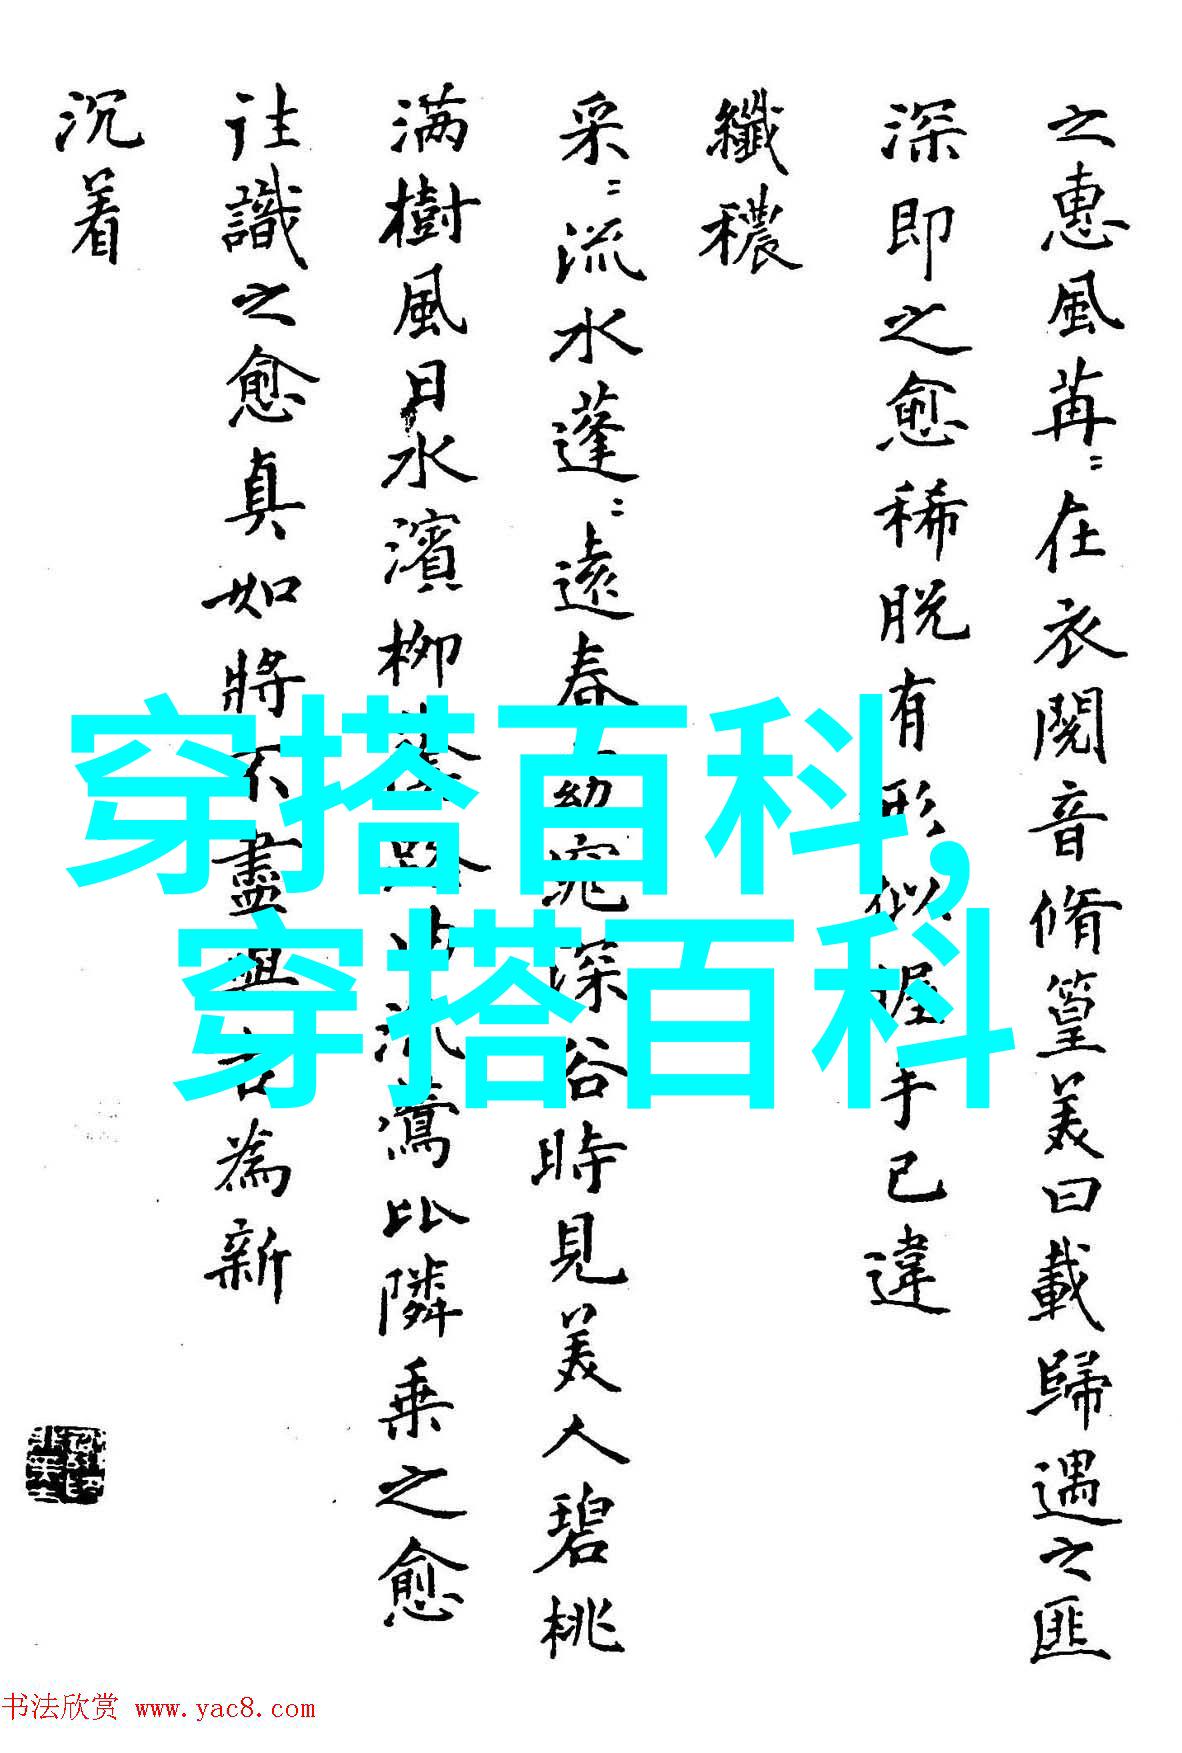 之惠風苒〻在衣閱音脩篁美曰載歸遇之匪
深即之愈稀脫有形似握手已違
纖穠
采〻流水蓬〻遠春窈窕深谷時見美人碧桃
满樹風日水濱柳陰路曲流鶯比隣乗之愈
往識之愈真如將不盡與古為新
沉着
穿搭百科,
穿搭百科
书法欣赏 www.yac8.com